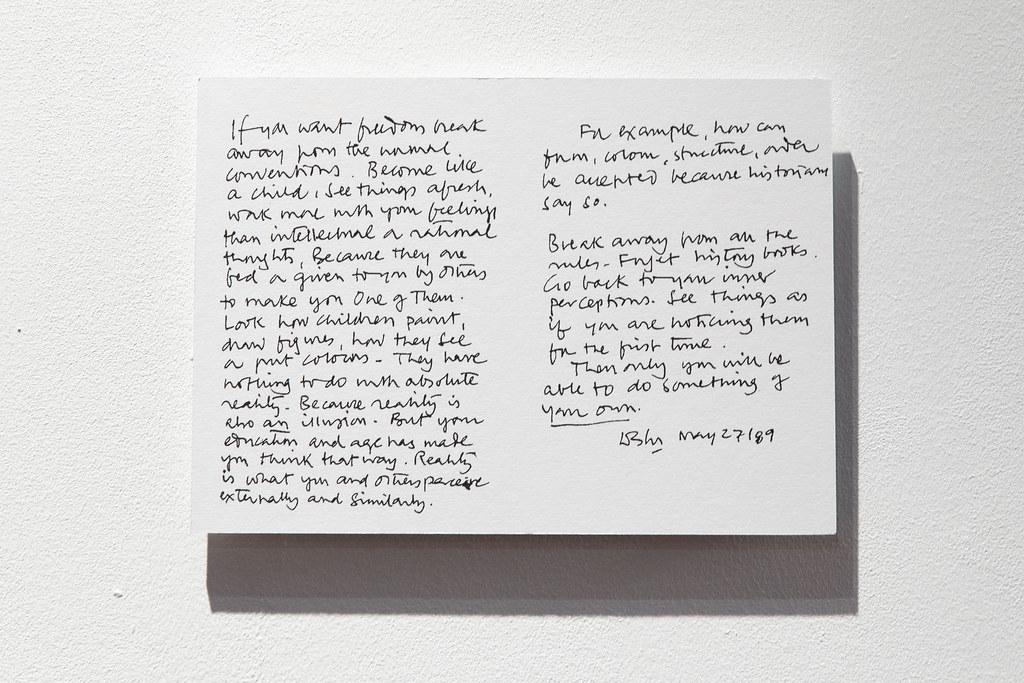 If you want freedom break
away from the normal
conventions. Become like
a child, see things afresh,
work more with your feelings
than intellectual or rational
thoughts, Because they are
fed or given to you by others
to make you One of Them.
Look how children paint,
draw figures, how they see
or put colours - They have
nothing to do with absolute
reality. Because reality is
also an illusion. But your
education and age has made
you think that way. Reality
is what you and others perceive
externally and similarly.
For example, how can
form, colour, structure, order
be accepted because historians
say so.
Break away from all the
rules - Forget history books.
Go back to your inner
perceptions. See things as
if you are noticing them
for the first time.
Then only you will be
able to do something of
your own.
May 27/89